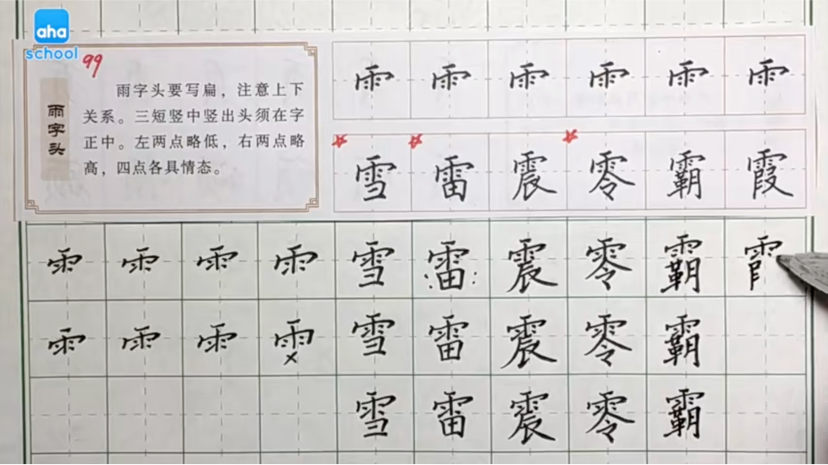 aha
school
99
雨字头
雨字头要写扁，注意上下
关系。三短竖中竖出头须在字
正中。左两点略低，右两点略
高，四点各具情态。
⻗ ⻗ ⻗ ⻗ ⻗ ⻗
雪 雷 震 零 霸 霞
⻗ ⻗ ⻗ ⻗ 雪 雷 震 零 霸
⻗ ⻗ ⻗ ⻗ 雪 雷 震 零 霸
雪 雷 震 零 霸